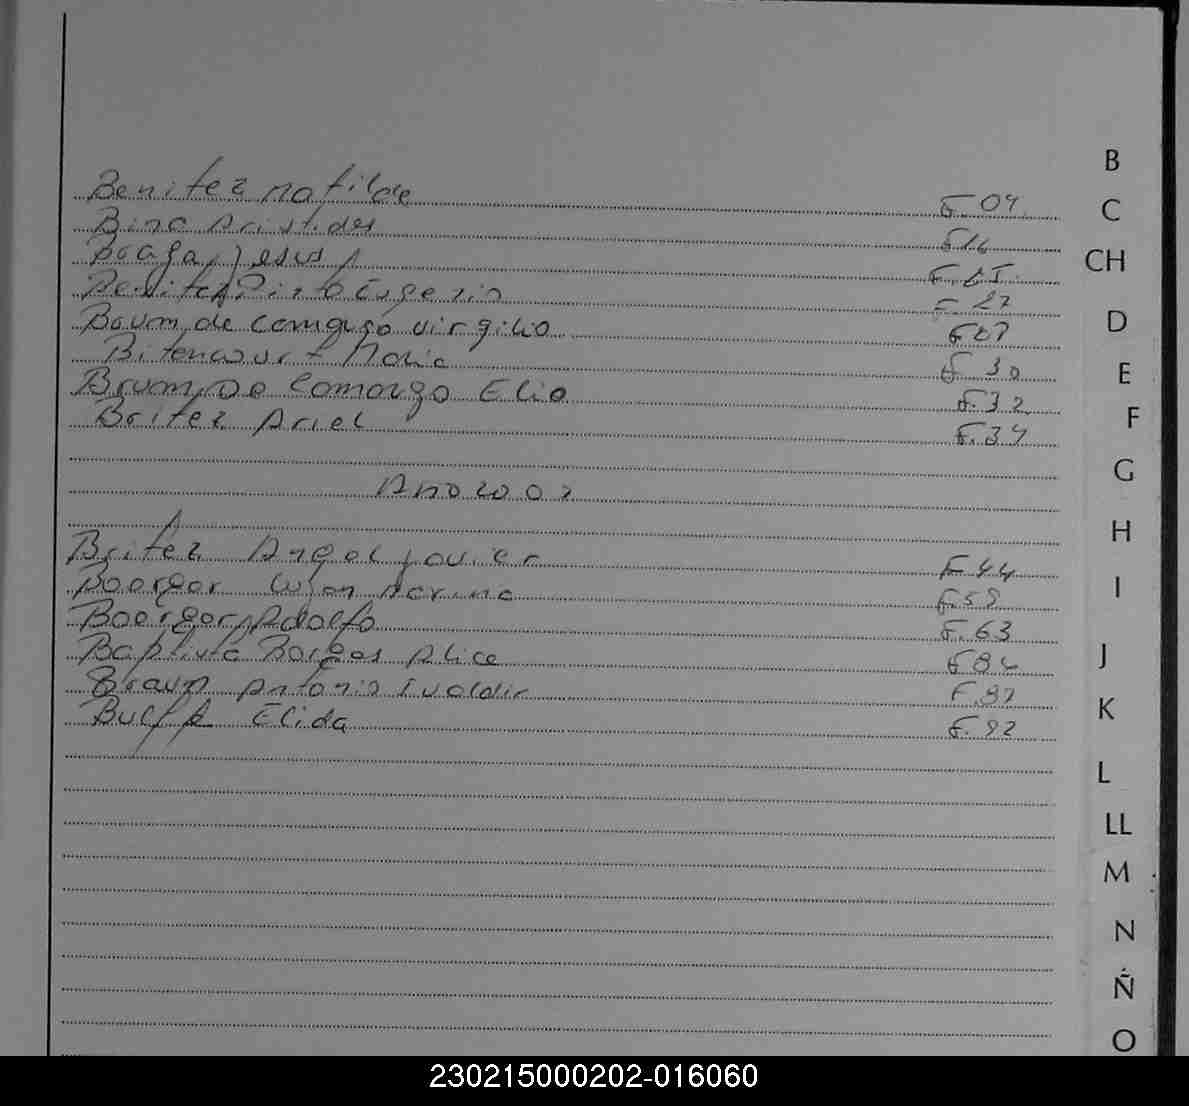 Benitez Matilde F. 04
B
Bino Aristides F16
C
Braga, Jesus F.
CH
Benitez Pinto Eugenio F. 27
D
Brum, de Camargo Virgilio F27
Bitencourt Maria F 30
E
Brum, De Camargo Elio F.32
Britez Ariel F.34
F
G
Ano 2002
H
Britez Angel Javier F 44
I
F.58
Adolfo F. 63
Baptista Borges Alice
J
Braun Antonio Ivaldir F.87
Elida F. 92
K
L
LL
M
N
Ñ
O
230215000202-016060